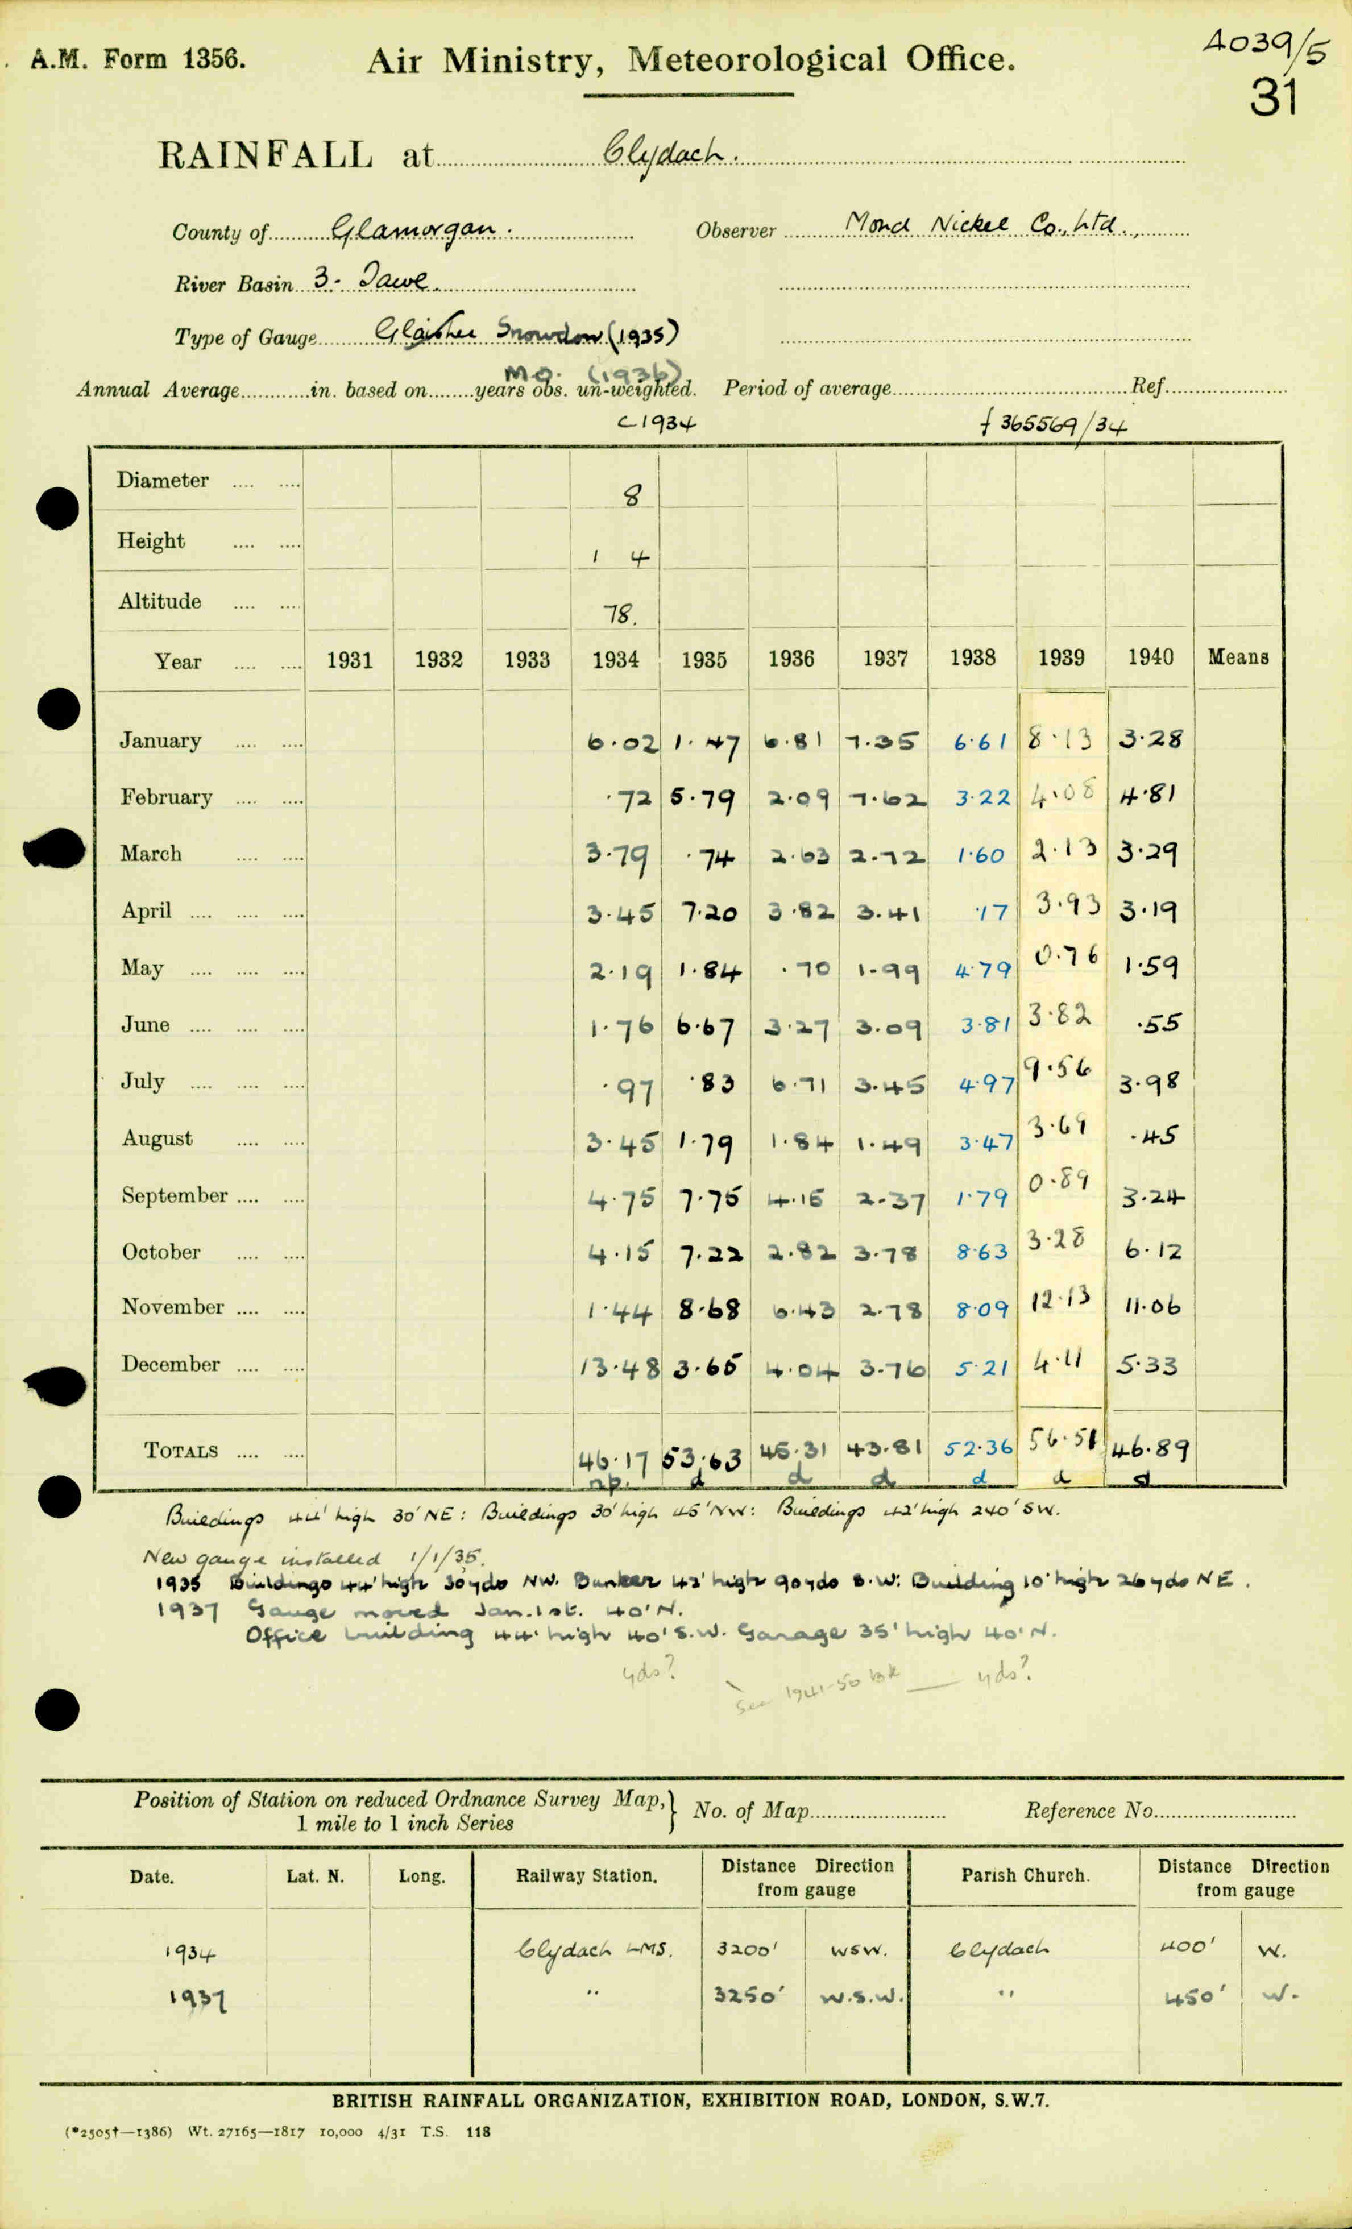 A.M. Form 1356.
Air Ministry, Meteorological Office.
A039/5
31
RAINFALL at Clydach.
County of Glamorgan. Observer Mond Nickel Co., Ltd.,
River Basin 3. Tawe.
Type of Gauge Glaisher Snowdon (1935)
M.O. (1936)
Annual Average in. based on years obs. un-weighted. Period of average Ref.
C1934 365569/34
Diameter 8
Height 1 4
Altitude 78.
Year 1931 1932 1933 1934 1935 1936 1937 1938 1939 1940 Means
January 6.02 1.47 6.81 7.35 6.61 8.13 3.28
February .72 5.79 2.09 7.62 3.22 4.08 4.81
March 3.79 .74 2.63 2.72 1.60 2.13 3.29
April 3.45 7.20 3.82 3.41 .17 3.93 3.19
May 2.19 1.84 .70 1.99 4.79 0.76 1.59
June 1.76 6.67 3.27 3.09 3.81 3.82 .55
July .97 .83 6.71 3.45 4.97 9.56 3.98
August 3.45 1.79 1.84 1.49 3.47 3.69 .45
September 4.75 7.75 4.15 2.37 1.79 0.89 3.24
October 4.15 7.22 2.82 3.78 8.63 3.28 6.12
November 1.44 8.68 6.43 2.78 8.09 12.13 11.06
December 13.48 3.65 4.04 3.76 5.21 4.11 5.33
TOTALS 46.17 53.63 45.31 43.81 52.36 56.51 46.89
np. d d d d d d
Buildings 44' high 30' NE: Buildings 30' high 45' NW: Buildings 42' high 240' SW.
New gauge installed 1/1/35.
1935 Buildings 44' high 30yds NW. Bunker 42' high 90yds S.W: Building 10' high 26yds NE.
1937 Gauge moved Jan. 1st. 40' N.
Office building 44' high 40' S.W. Garage 35' high 40' N.
yds? See 1941-50 bk yds?
Position of Station on reduced Ordnance Survey Map,
1 mile to 1 inch Series
No. of Map Reference No.
Date. Lat. N. Long. Railway Station. Distance Direction from gauge Parish Church. Distance Direction from gauge
1934 Clydach LMS. 3200' WSW. Clydach 400' W.
1937 " 3250' W.S.W. " 450' W.
BRITISH RAINFALL ORGANIZATION, EXHIBITION ROAD, LONDON, S.W.7.
(*2505†—1386) Wt. 27165—1817 10,000 4/31 T.S. 118